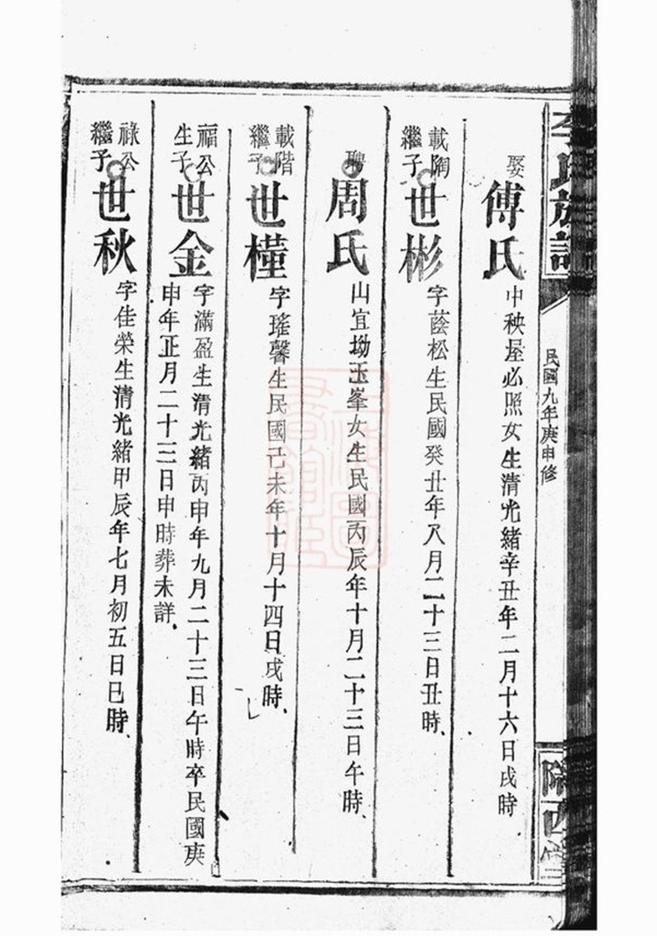 李氏族譜
民國九年庚申修
隴西堂
娶傅氏中秧屋必照女生清光緒辛丑年二月十六日戌時
載陶繼子世彬字蔭松生民國癸丑年八月二十三日丑時、
聘周氏山宜坳玉峯女生民國丙辰年十月二十三日午時、
載階繼子世槿字瑤馨生民國己未年十月十四日戌時、
福公生子世金字滿盈生清光緒丙申年九月二十三日午時卒民國庚
申年正月二十三日申時葬未詳、
祿公繼子世秋字佳榮生清光緒甲辰年七月初五日巳時、